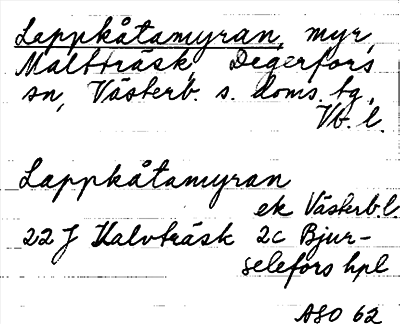 Lappkåtamyran, myr,
Maltträsk, Degerfors
sn, Västerb. s. doms. tg,
Vb. l.
Lappkåtamyran
ek Västerb l
22 J Kalvträsk 2c Bjur-
selefors hpl
ASO 62